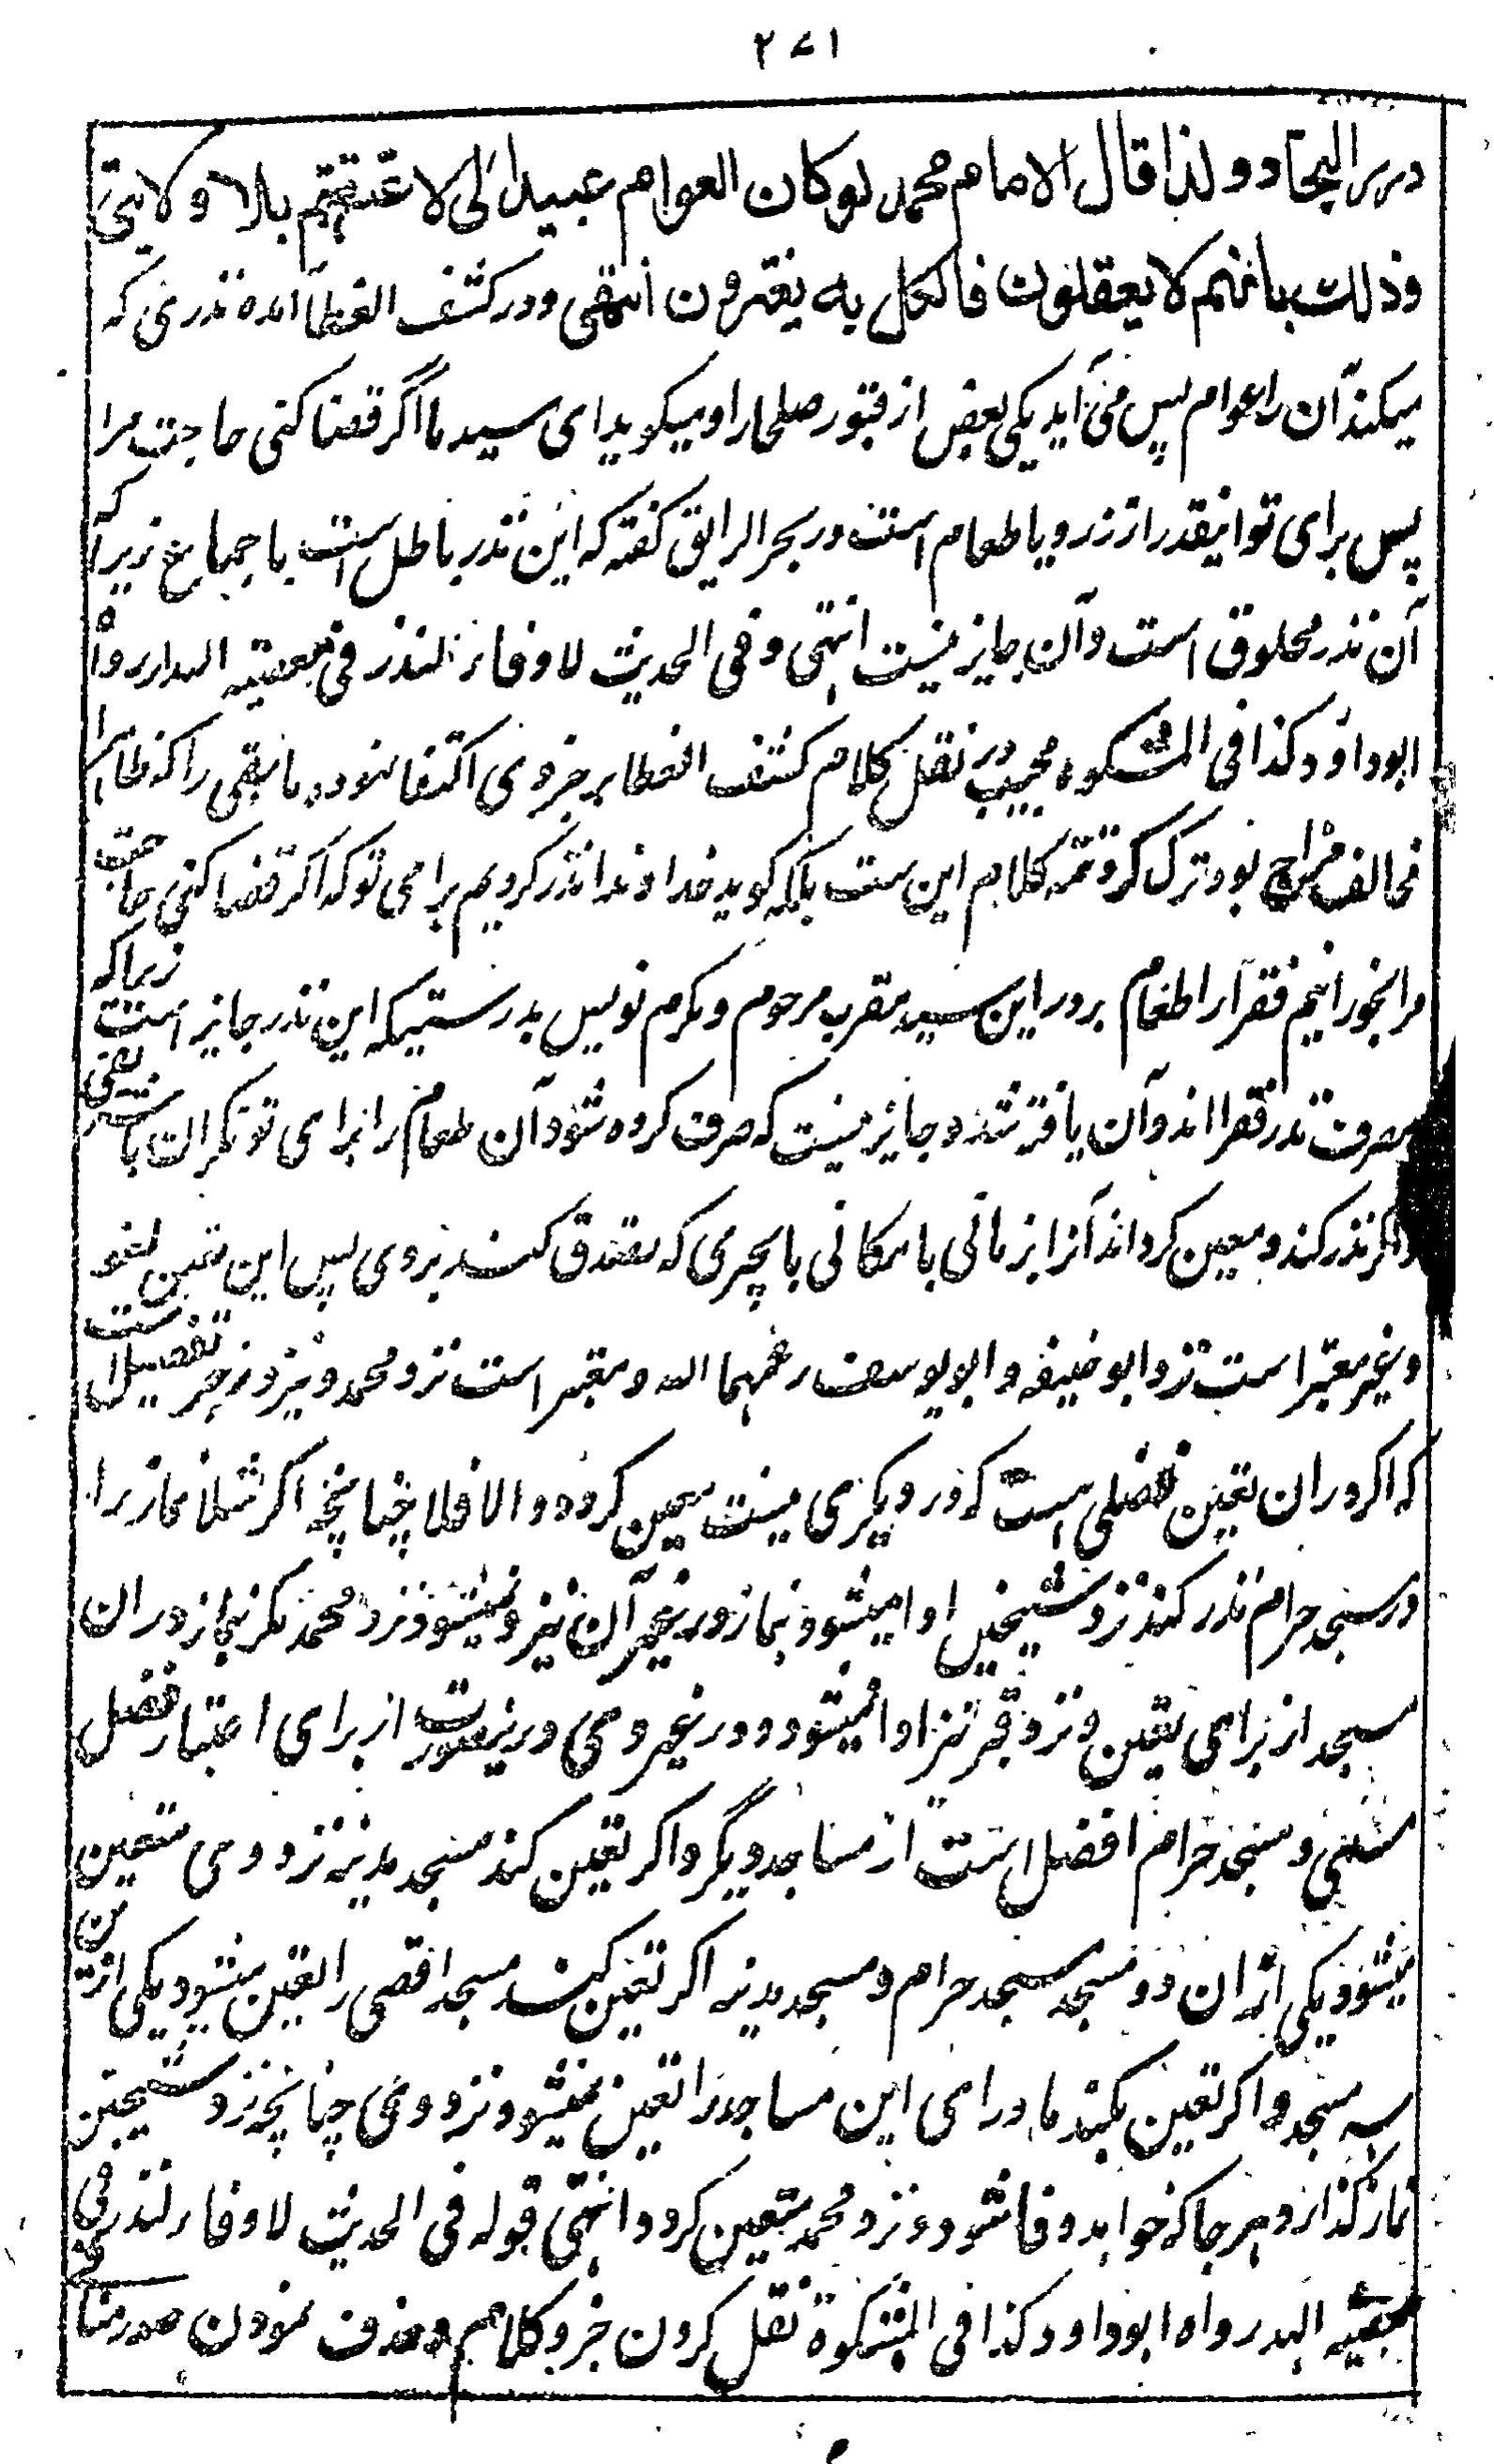 ۲۷۱
درر البحار ولذا قال الامام محمد لو كان العوام عبيدا لى لاعتقتهم بلا ولايتى
وذلك بانهم لا يعقلون فالكل به يغترون انتهى ودر كشف الغطا آمده نذرى كه
ميكند آن را عوام پس مى آيد يكى بعض از قبور صلحا را وميكويد اى سيد ما اگر قضا كنى حاجت مرا
پس براى تو اينقدر از زر ويا طعام است در بحر الرايق گفته كه اين نذر باطل است باجماع زيرا كه
آن نذر مخلوق است وآن جايز نيست انتهى وفى الحديث لا وفاء لنذر فى معصية الله رواه
ابو داود كذا فى المشكوه مجيب در نقل كلام كشف الغطا بر جزوى اكتفا نموده ما بقى را كه ظاهرا
مخالف مزاج بود ترك كرد وتتمه كلام اين ست بلكه كويد خداوندا نذر كرديم براى تو كه اگر قضا كنى حاجت
مرا بخورانيم فقرا را طعام بر در اين سيد مقرب مرحوم ومكرم نويس بدرستيكه اين نذر جايز است زيرا كه
مصرف نذر فقرا اند وآن يافته شد وجايز نيست كه صرف كرده شود آن طعام را براى تونكران باشد يعنى
واگر نذر كند ومعين كرداند آنرا بزمانى يا مكانى يا بچيزى كه تصدق كند بروى پس اين تعين لغو
وغير معتبر است نزد ابو حنيفه وابو يوسف رحمهما الله ومعتبر است نزد محمد ونزد زفر تفصيل ست
كه اگر در ان تعين فضلى است كه در ديگرى نيست معين كردد والا فلا چنانچه اگر شلا نماز را
در مسجد حرام نذر كند نزد شيخين ادا ميشود نماز در غير آن نيز ونميشود نزد محمد مگر نماز در ان
مسجد از براى تعين ونزد زفر نيز ادا نميشود در غير وى درينصورت از براى اعتبار فضل
ومسجد حرام افضل است از مساجد ديگر واگر تعين كند مسجد مدينه نزد وى متعين
ميشود يكى از ان دو مسجد مسجد حرام ومسجد مدينه اگر تعين كند مسجد اقصى را تعين ميشود يكى ازين
سه مسجد واگر تعين بكند ما وراى اين مساجد را تعين نميشود نزد وى چنانچه نزد شيخين
نماز كذارد هر جا كه خواهد وفا شود ونزد محمد متعين كردد انتهى قوله فى الحديث لا وفاء لنذر فى
معصية الله رواه ابو داود كذا فى المشكوة نقل كردن جزو كلام وحذف نمودن صدر